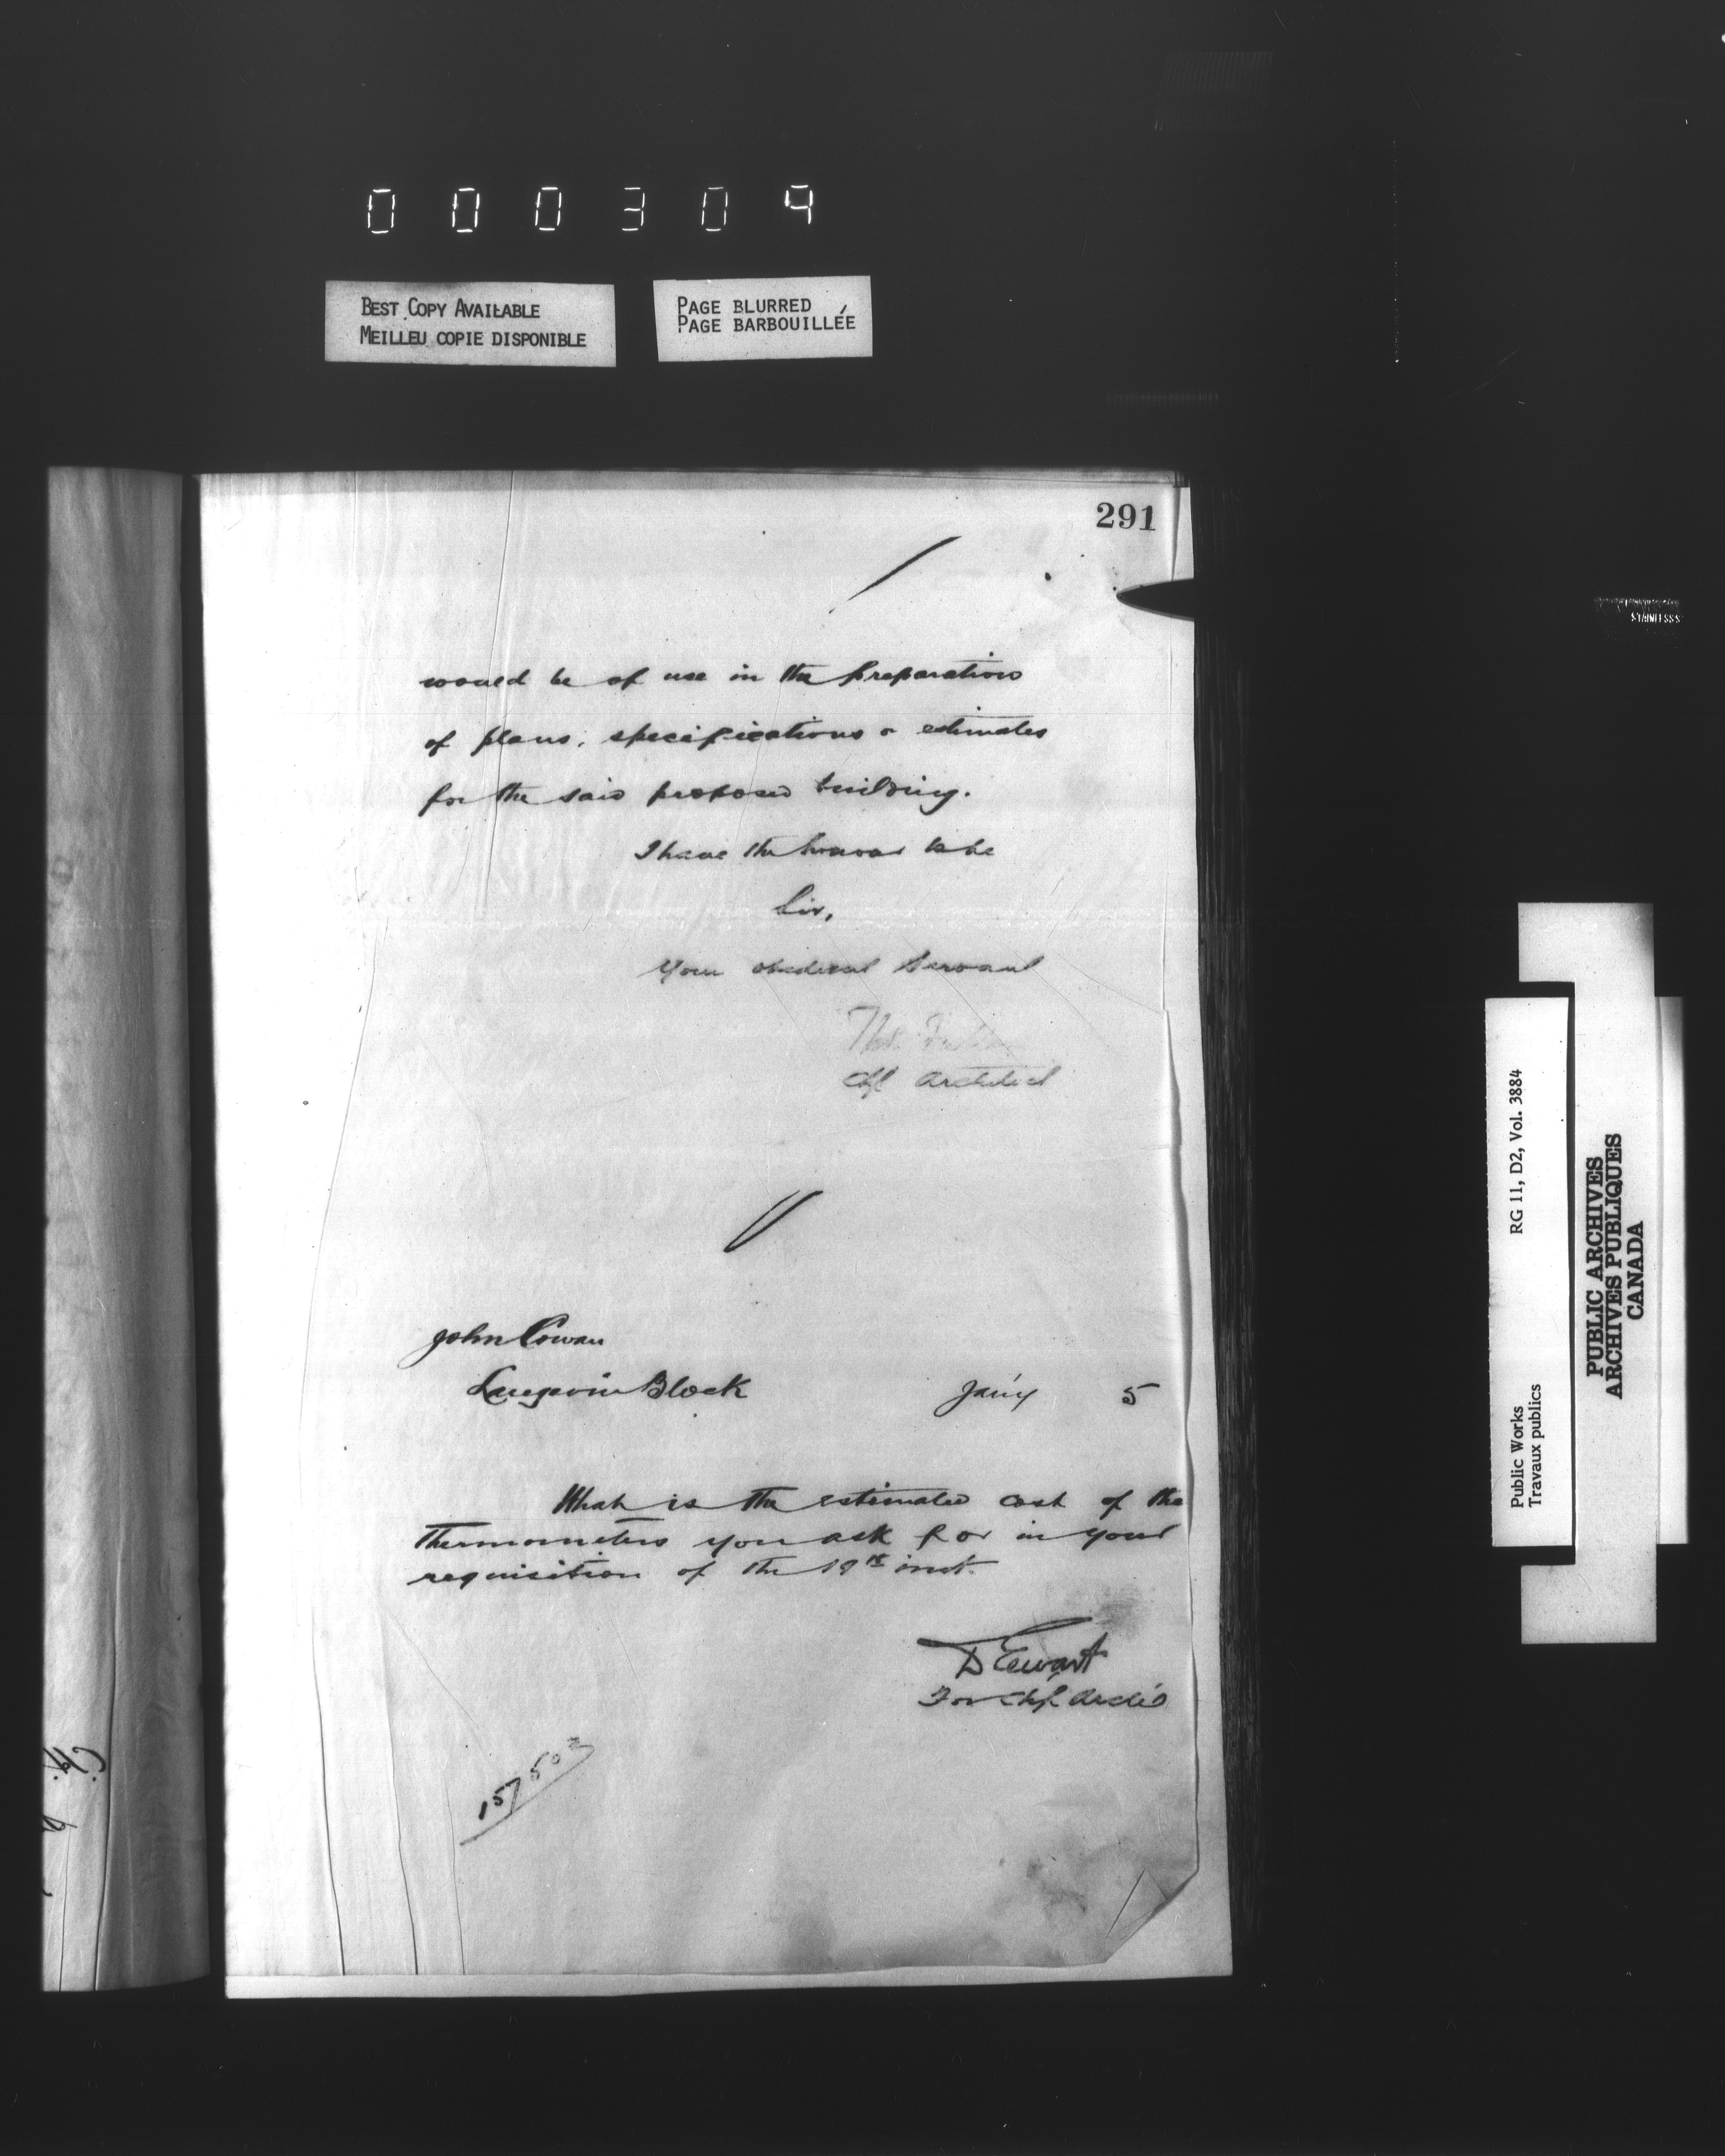 000304
BEST COPY AVAILABLE
MEILLEU COPIE DISPONIBLE
PAGE BLURRED
PAGE BARBOUILLÉE
291
would be of use in the preparation
of plans, specifications & estimates
for the said proposed building.
I have the honour to be
Sir,
Your obedient Servant
Thos. Fuller
Chf Architect
John Cowan
Langevin Block Jan'y 5
What is the estimated cost of the
thermometers you ask for in your
requisition of the 19th inst.
D Ewart
For Chf. Arch't
157 50
STAINLESS
RG 11, D2, Vol. 3884
Public Works
Travaux publics
PUBLIC ARCHIVES
ARCHIVES PUBLIQUES
CANADA